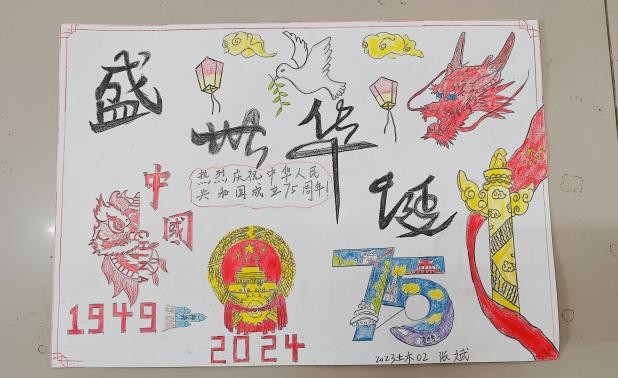 盛世华诞
热烈庆祝中华人民
共和国成立75周年!
中國
1949
2024
75
2023土木02 张斌